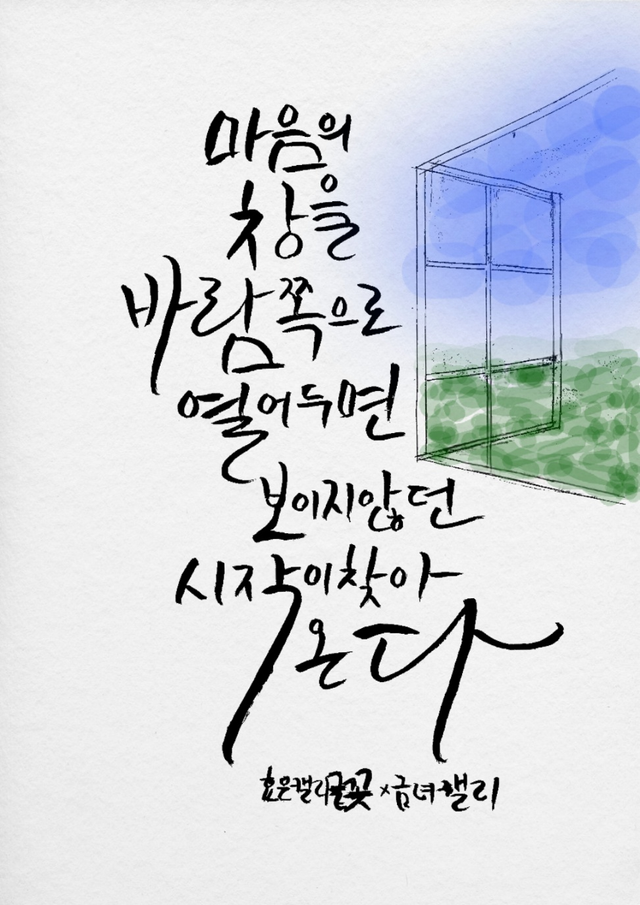 마음의
창을
바람쪽으로
열어두면
보이지않던
시작이찾아
온다
효은캘리글꽃 x 금녀캘리